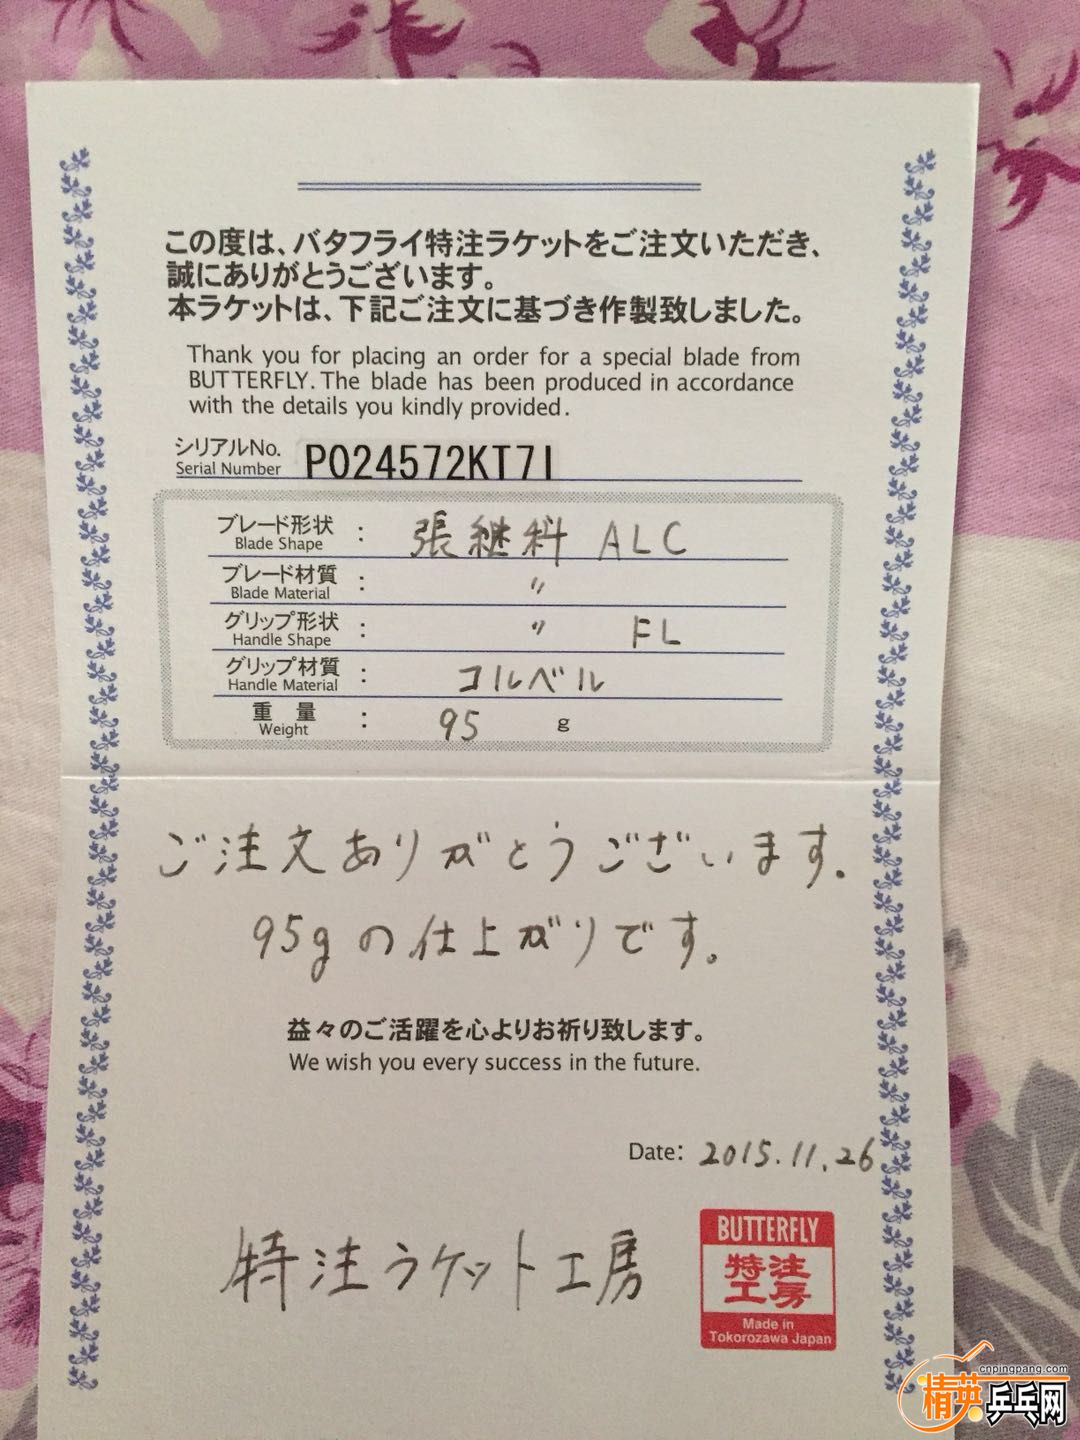 この度は、バタフライ特注ラケットをご注文いただき、
誠にありがとうございます。
本ラケットは、下記ご注文に基づき作製致しました。
Thank you for placing an order for a special blade from
BUTTERFLY. The blade has been produced in accordance
with the details you kindly provided.
シリアルNo.
Serial Number
P024572KT7I
ブレード形状 : 張継科 ALC
Blade Shape
ブレード材質 : 〃
Blade Material
グリップ形状 : 〃 FL
Handle Shape
グリップ材質 : コルベル
Handle Material
重量 : 95 g
Weight
ご注文ありがとうございます.
95gの仕上がりです。
益々のご活躍を心よりお祈り致します。
We wish you every success in the future.
Date: 2015.11.26
特注ラケット工房
BUTTERFLY
特注
工房
Made in
Tokorozawa Japan
cnpingpang.com
精英乒乓网